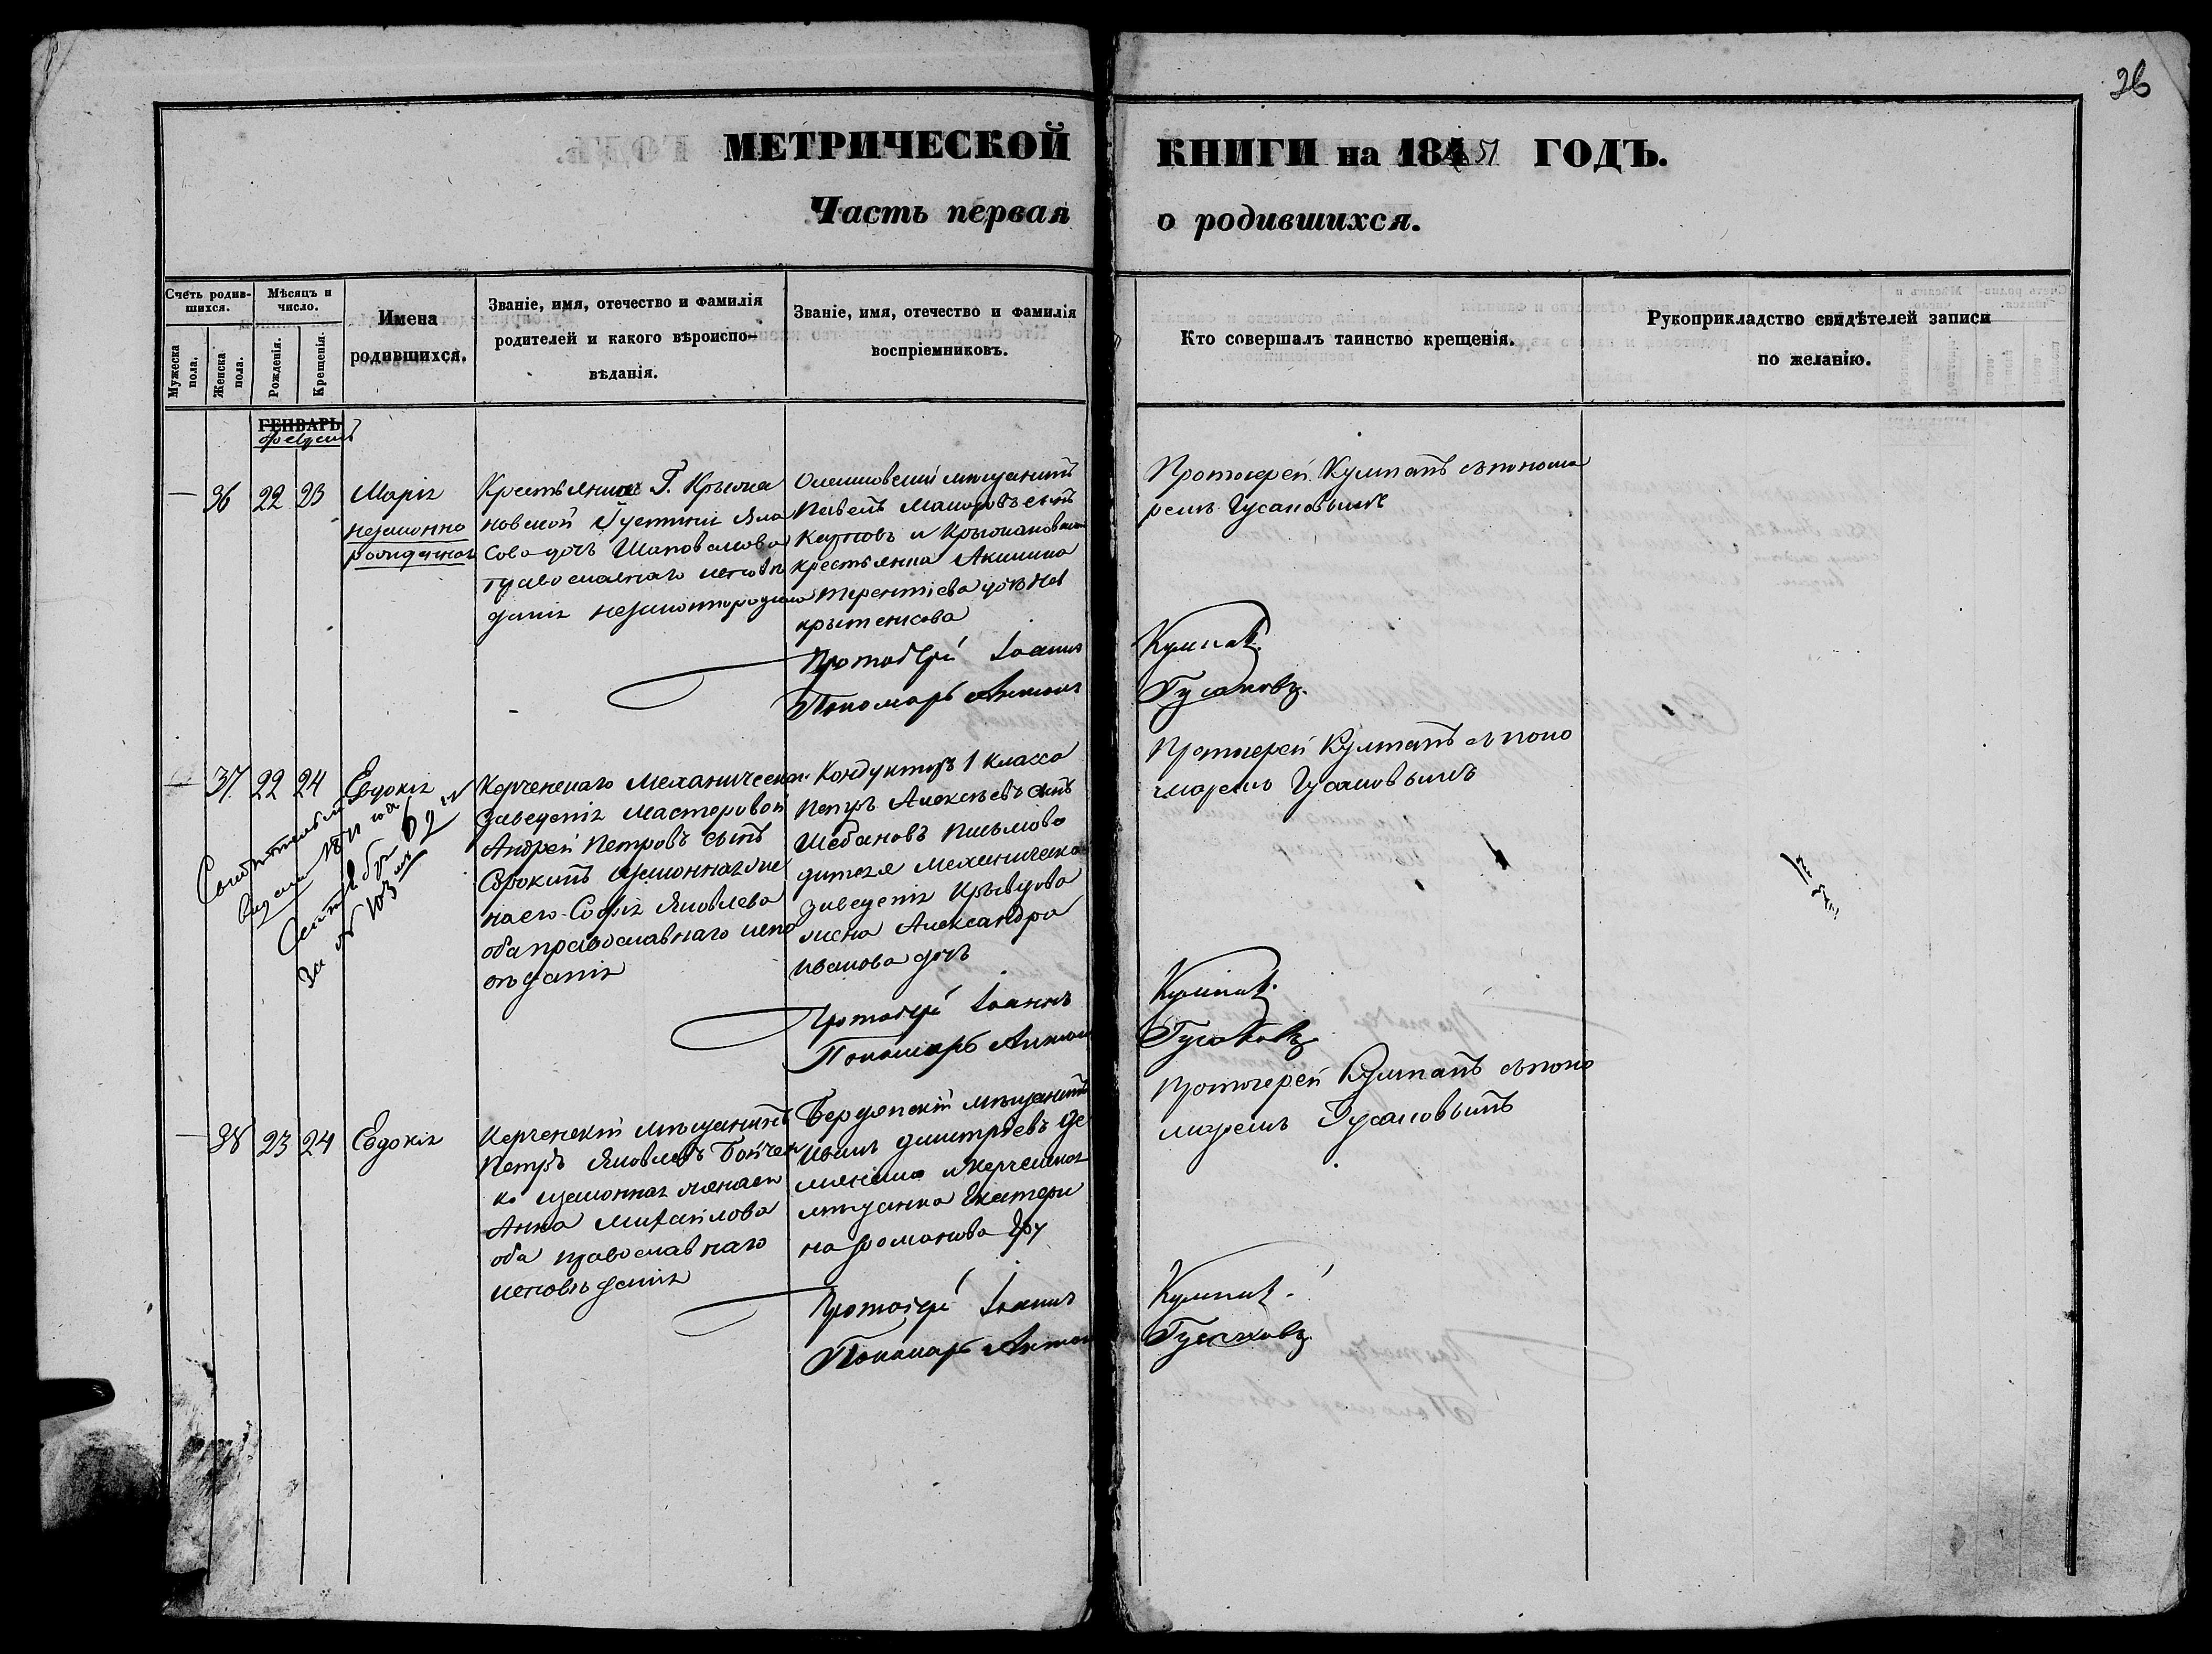 26
МЕТРИЧЕСКОЙ КНИГИ на 1851 ГОДЪ.
Часть первая о родившихся.
Счетъ родив-
шихся.
Мужеска
пола.
Женска
пола.
Мѣсяцъ и
число.
Рожденія.
Крещенія.
Имена
родившихся.
Званіе, имя, отечество и фамилія
родителей и какого вѣроиспо-
вѣданія.
Званіе, имя, отечество и фамилія
воспріемниковъ.
Кто совершалъ таинство крещенія.
Рукоприкладство свидѣтелей записи
по желанію.
ГЕНВАРЬ
36 22 23
Марія
незаконно
рожденная
Крестьянка Г.
православнаго исповѣ
данія
Павелъ
и
крестьянка Акилина
Терентіева дочь
Протоіерей Іоаннъ
Пономарь Антонъ
Протоіерей Кумпанъ съ понома
ремъ Гусаковымъ
Кумпанъ
Гусаковъ
37 22 24
Евдокія
Свидѣтельство
видано
за № 103
Керченскаго Механическаго
Заведенія мастеровой
Андрей Петровъ сынъ
Сорокинъ и законная же
на его Софія Яковлева
оба православнаго испо
вѣданія
Кондукторъ 1 класса
Петръ Алексѣевъ сынъ
Шебановъ Письмово
дителя механическаго
заведенія Кривцова
жена Александра
Иванова дочь
Протоіерей Іоаннъ
Пономарь Антонъ
Протоіерей Кумпанъ съ поно
маремъ Гусаковымъ
Кумпанъ
Гусаковъ
38 23 24
Евдокія
Керченскій мѣщанинъ
Петръ Яковлевъ Бойчен
ко и законная жена его
Анна Михайлова
оба православнаго
исповѣданія
Бердянскій мѣщанинъ
Иванъ Димитріевъ
и Керченская
мѣщанка Екатери
на Романова
Протоіерей Іоаннъ
Пономарь Антонъ
Протоіерей Кумпанъ съ поно
маремъ Гусаковымъ
Кумпанъ
Гусаковъ